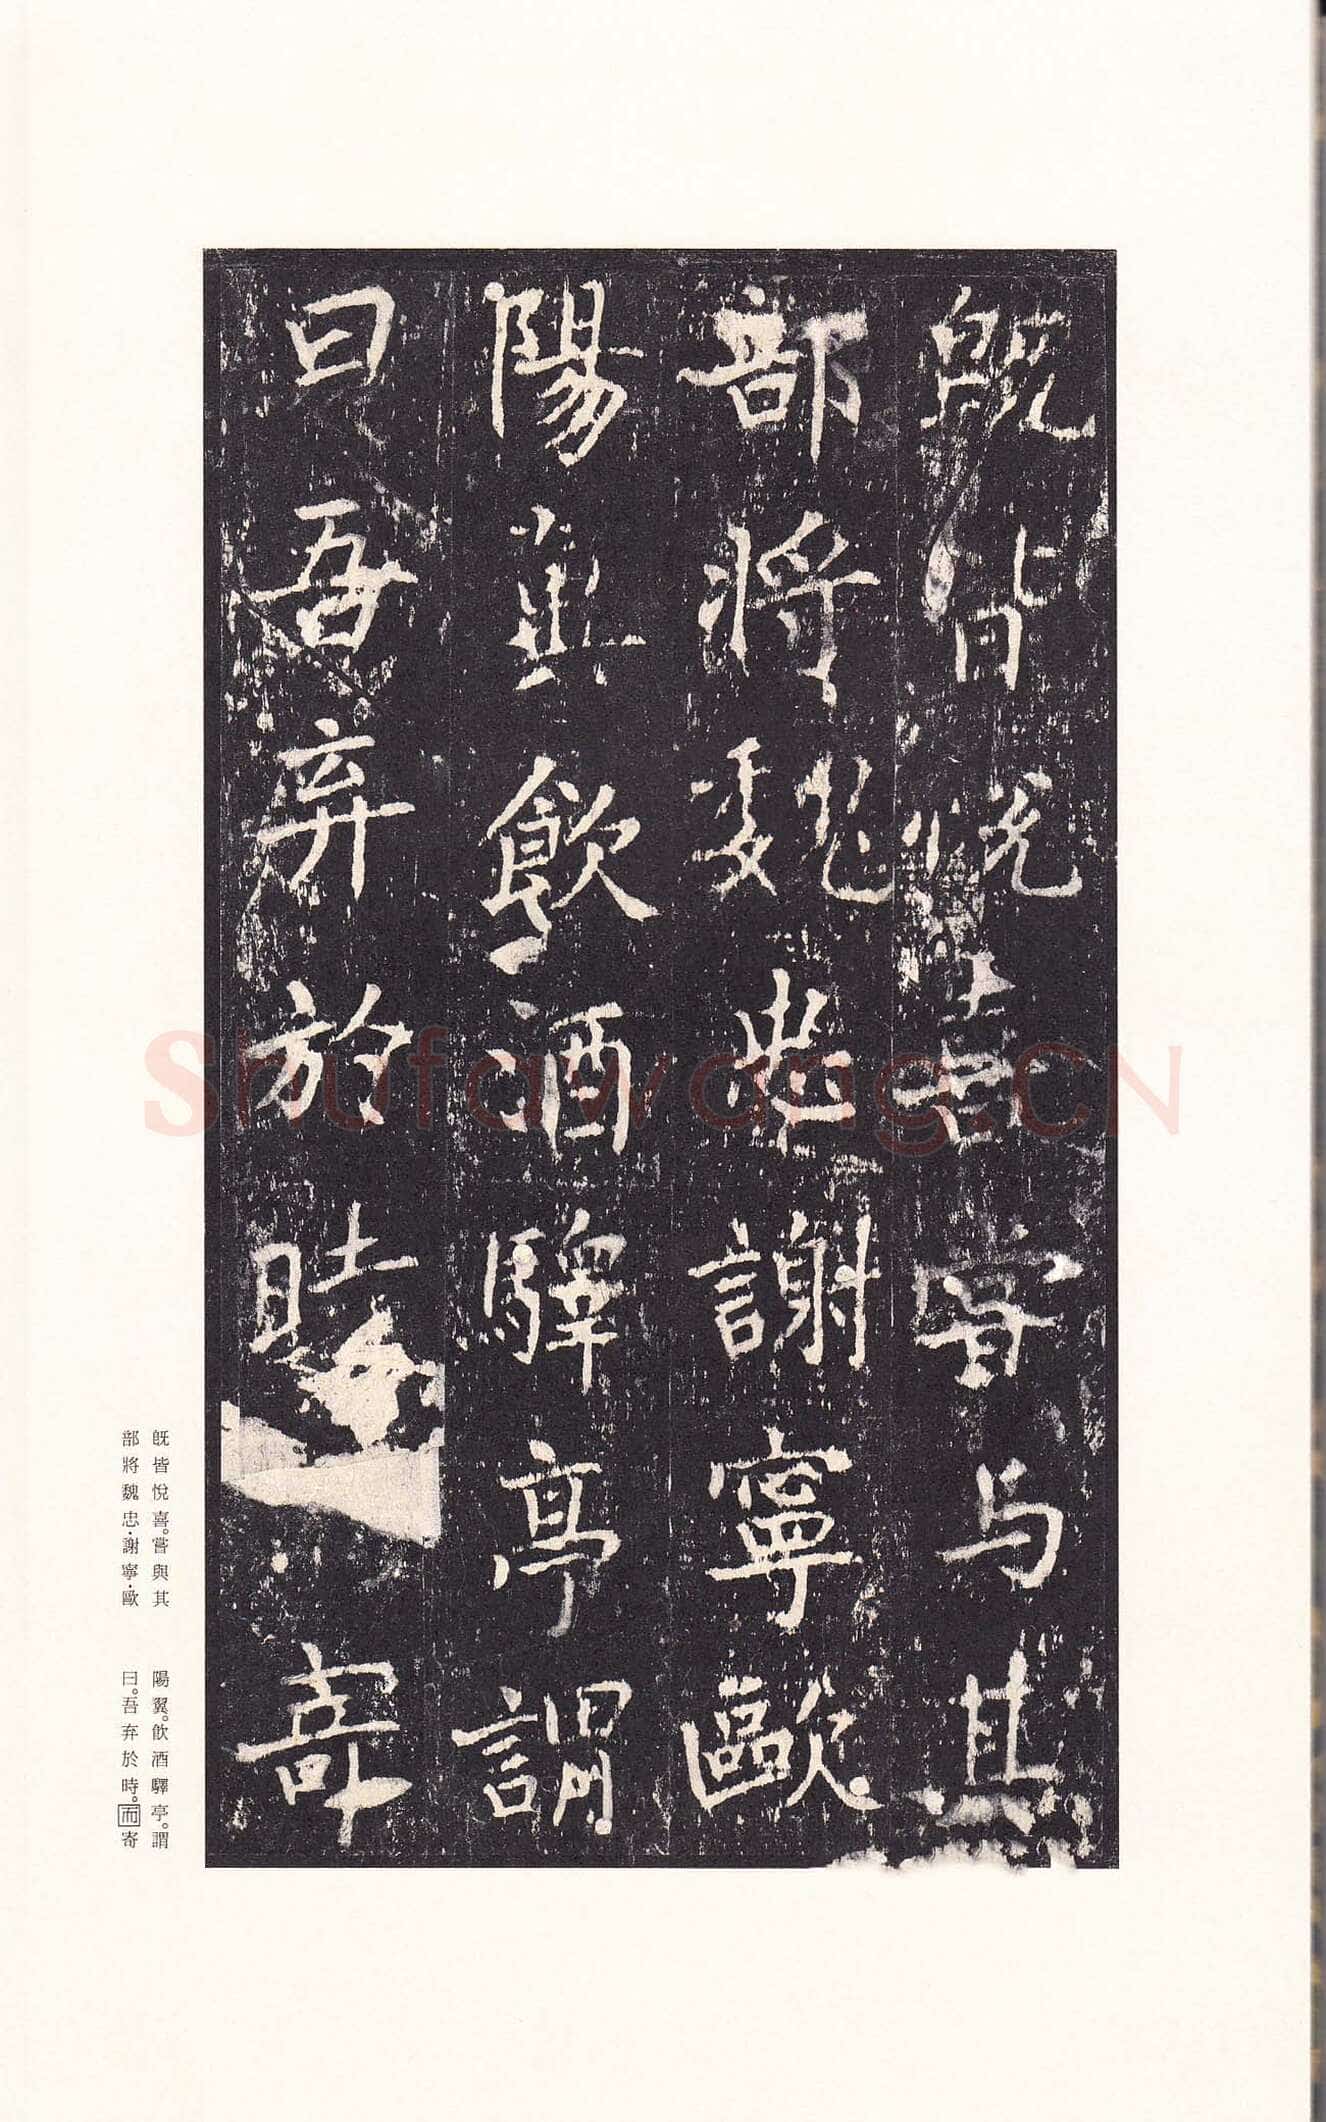 既皆悦喜甞与其
部將魏忠謝寧歐
陽翼飲酒驛亭謂
曰吾弃於時寄
既皆悅喜。嘗與其
部將魏忠·謝寧·歐
陽翼。飲酒驛亭。謂
曰。吾弃於時。而寄
Shufawang.CN